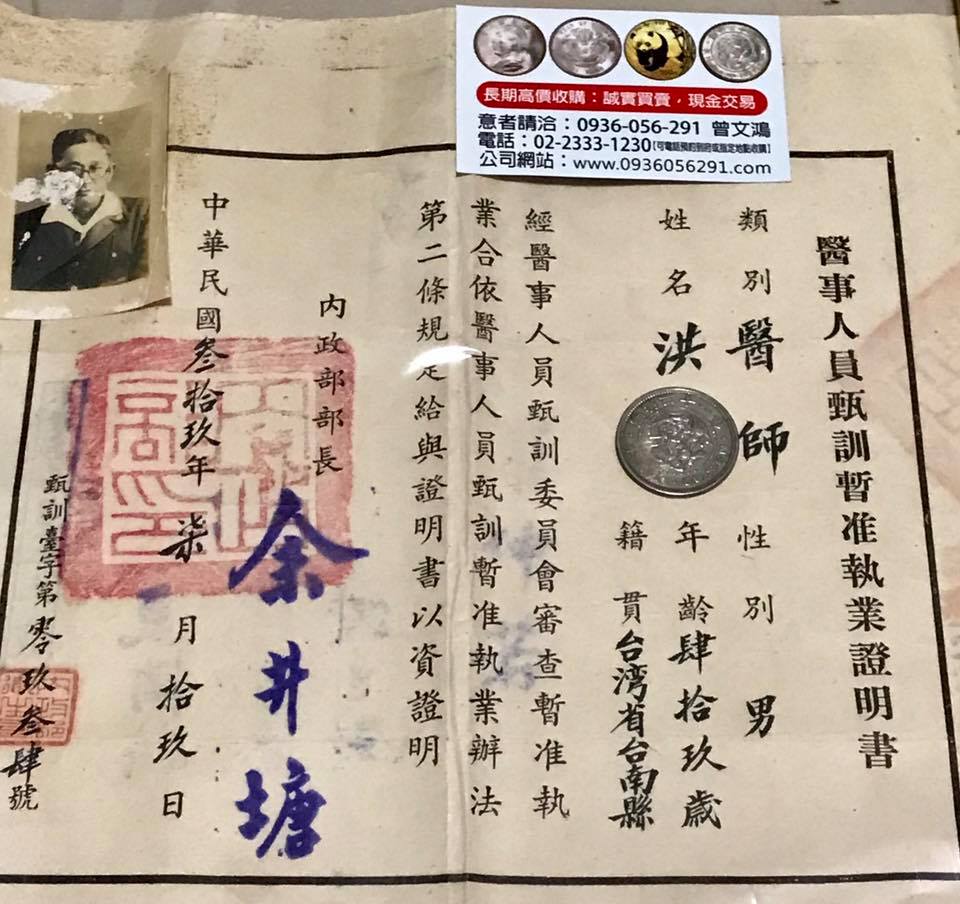 長期高價收購：誠實買賣，現金交易
意者請洽：0936-056-291 曾文鴻
電話：02-2333-1230【可電話預約到府或指定地點收購】
公司網站：www.0936056291.com
醫事人員甄訓暫准執業證明書
類別醫師性別男
姓名洪年齡肆拾玖歲
籍貫台湾省台南縣
經醫事人員甄訓委員會審查暫准執
業合依醫事人員甄訓暫准執業辦法
第二條規定給與證明書以資證明
內政部部長余井塘
中華民國叁拾玖年柒月拾玖日
甄訓臺字第零玖叁肆號